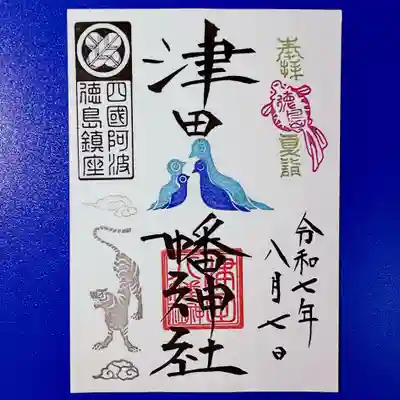 奉拝
徳島
夏詣
津田八幡神社
令和七年
八月七日
四國阿波
徳島鎮座